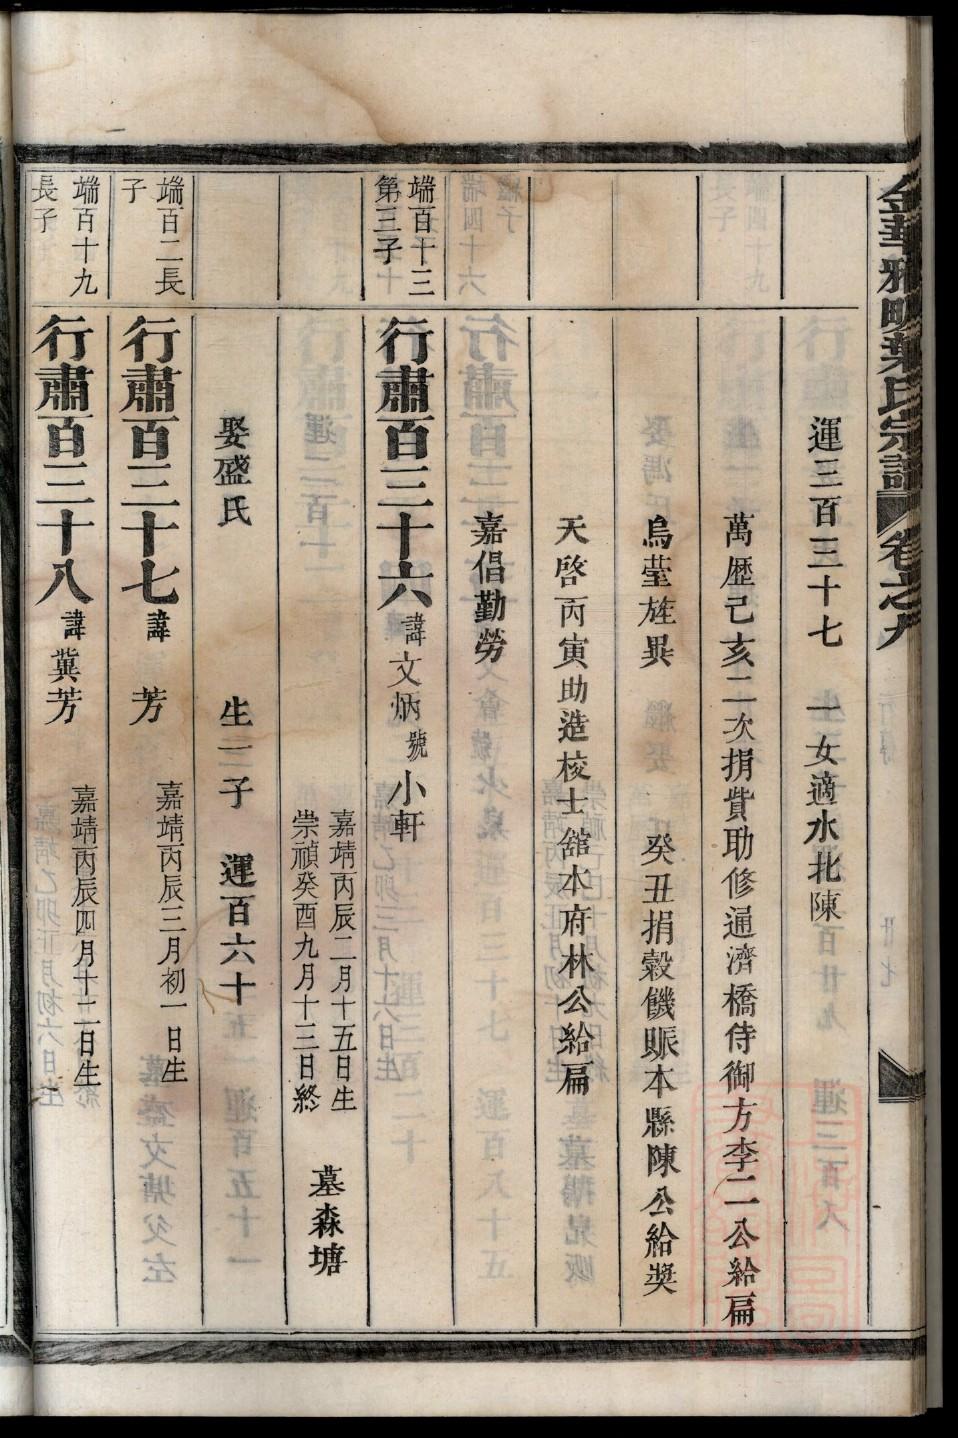 金華雅畈葉氏宗譜 卷之九
運三百三十七 一女適水北陳
萬歷己亥二次捐貲助修通濟橋侍御方李二公給扁
烏薹旌異 癸丑捐穀饑賑本縣陳公給獎
天啓丙寅助造校士舘本府林公給扁
嘉倡勤勞
端百十三
第三子
行肅百三十六 諱文炳 號小軒
嘉靖丙辰二月十五日生
崇禎癸酉九月十三日終
墓森塘
娶盛氏 生一子 運百六十
端百二長
子
行肅百三十七 諱 芳 嘉靖丙辰三月初一日生
端百十九
長子
行肅百三十八 諱蓂芳 嘉靖丙辰四月十二日生